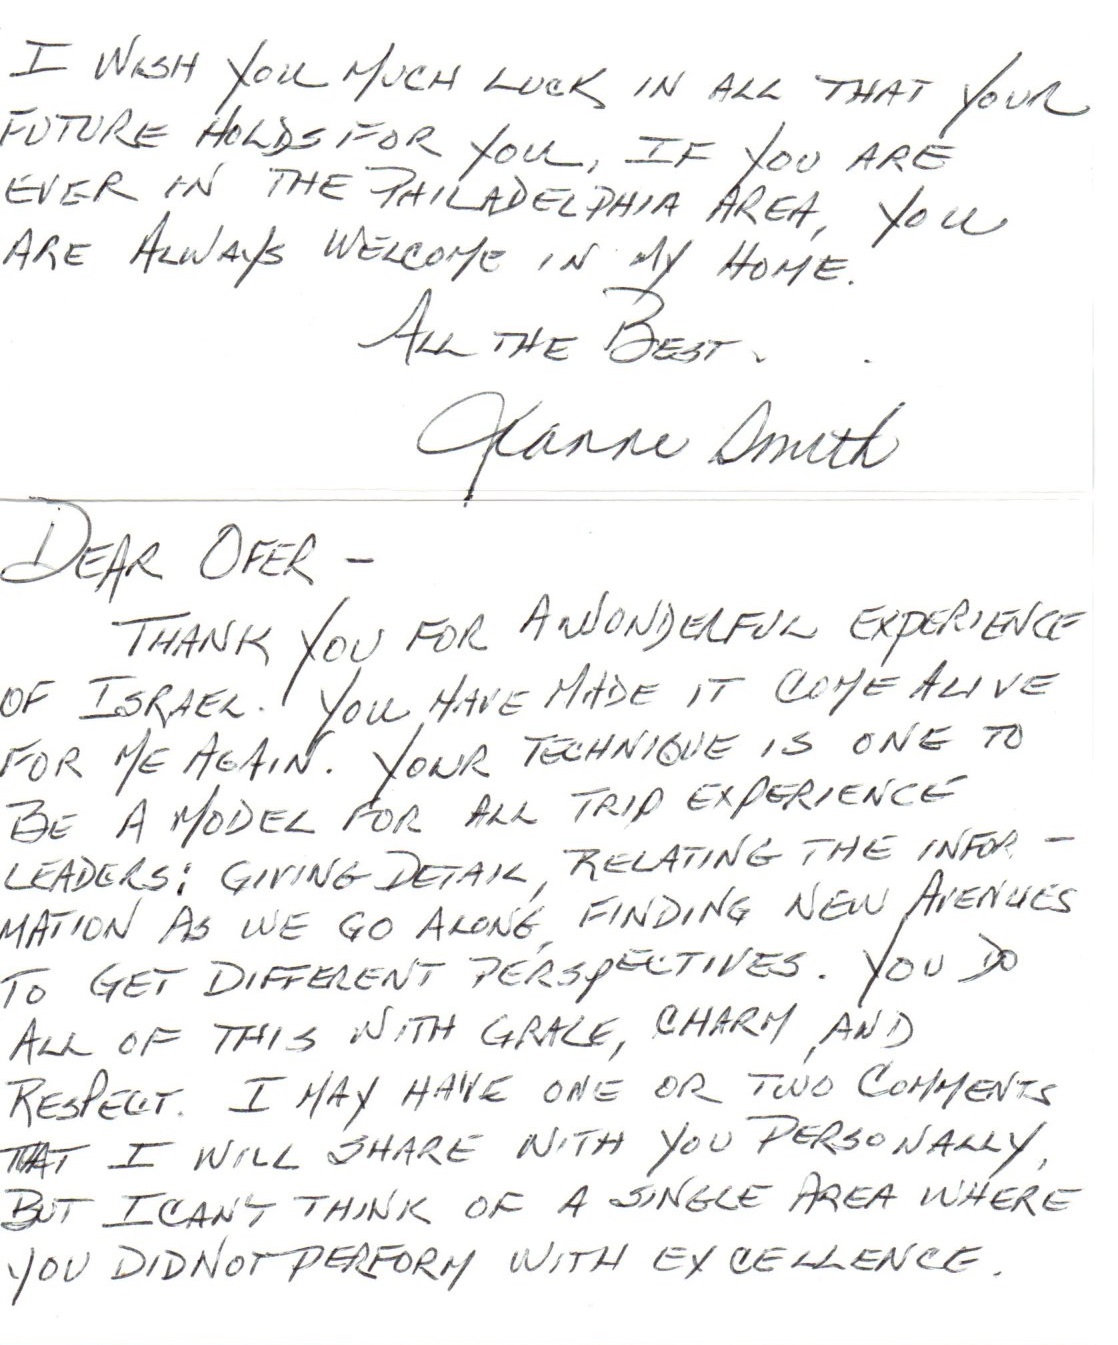 I WISH YOU MUCH LUCK IN ALL THAT YOUR
FUTURE HOLDS FOR YOU. IF YOU ARE
EVER IN THE PHILADELPHIA AREA, YOU
ARE ALWAYS WELCOME IN MY HOME.
ALL THE BEST.
Jeanne Smith
DEAR OFER -
THANK YOU FOR A WONDERFUL EXPERIENCE
OF ISRAEL. YOU HAVE MADE IT COME ALIVE
FOR ME AGAIN. YOUR TECHNIQUE IS ONE TO
BE A MODEL FOR ALL TRIP EXPERIENCE
LEADERS: GIVING DETAIL, RELATING THE INFOR-
MATION AS WE GO ALONG, FINDING NEW AVENUES
TO GET DIFFERENT PERSPECTIVES. YOU DO
ALL OF THIS WITH GRACE, CHARM, AND
RESPECT. I MAY HAVE ONE OR TWO COMMENTS
THAT I WILL SHARE WITH YOU PERSONALLY,
BUT I CAN'T THINK OF A SINGLE AREA WHERE
YOU DID NOT PERFORM WITH EXCELLENCE.